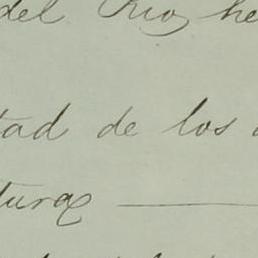 del Rio, he
tad de los
tura